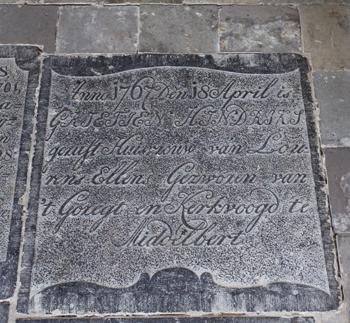 Anno 176 Den 18 April is
GRIETIEN HINDRIKS
gerust Huisvrouw van Lou
rens Ellens Gezworen van
't Goregt en Kerkvoogd te
Middelbert